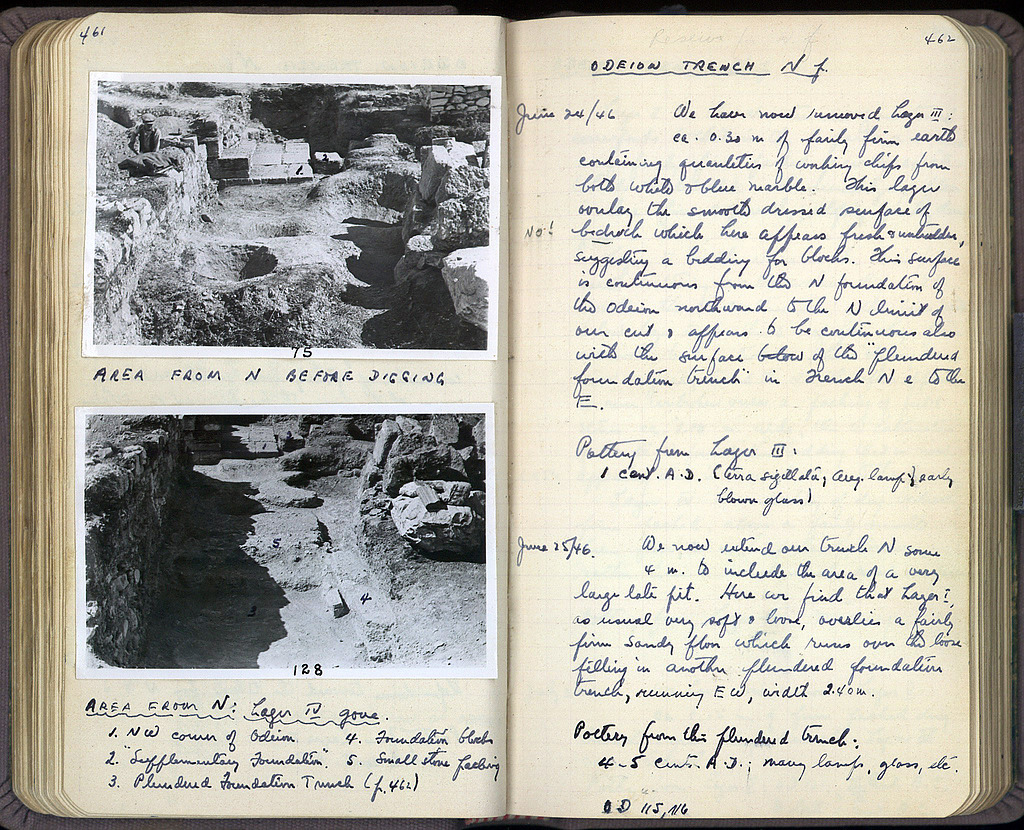 461
75
AREA FROM N BEFORE DIGGING
1.
5
4
3
128
AREA FROM N: Layer IV gone.
1. NW corner of Odeion
2. "Supplementary Foundation"
3. Plundered Foundation Trench (p. 462)
4. Foundation blocks
5. Small stone packing
462
ODEION TRENCH N f.
June 24/46 We have now removed Layer III:
ca. 0.30 m of fairly firm earth
containing quantities of working chips from
both white & blue marble. This layer
overlay the smooth dressed surface of
No! bedrock which here appears fresh &
suggesting a bedding for blocks. This surface
is continuous from the N foundation of
the Odeion northward to the N limit of
our cut & appears to be continuous also
with the surface below of the "plundered
foundation trench" in Trench N e to the
E.
Pottery from Layer III:
1 cent. A.D. (terra sigillata, lamp, early
blown glass)
June 25/46. We now extend our trench N some
4 m. to include the area of a very
large late pit. Here we find that Layer I,
as usual very soft & loose, overlies a fairly
firm sandy floor which runs over the loose
filling in another plundered foundation
trench, running EW, width 2.40m.
Pottery from this plundered trench:
4-5 cents. A.D.; many lamps, glass, etc.
ΟΔ 115, 116